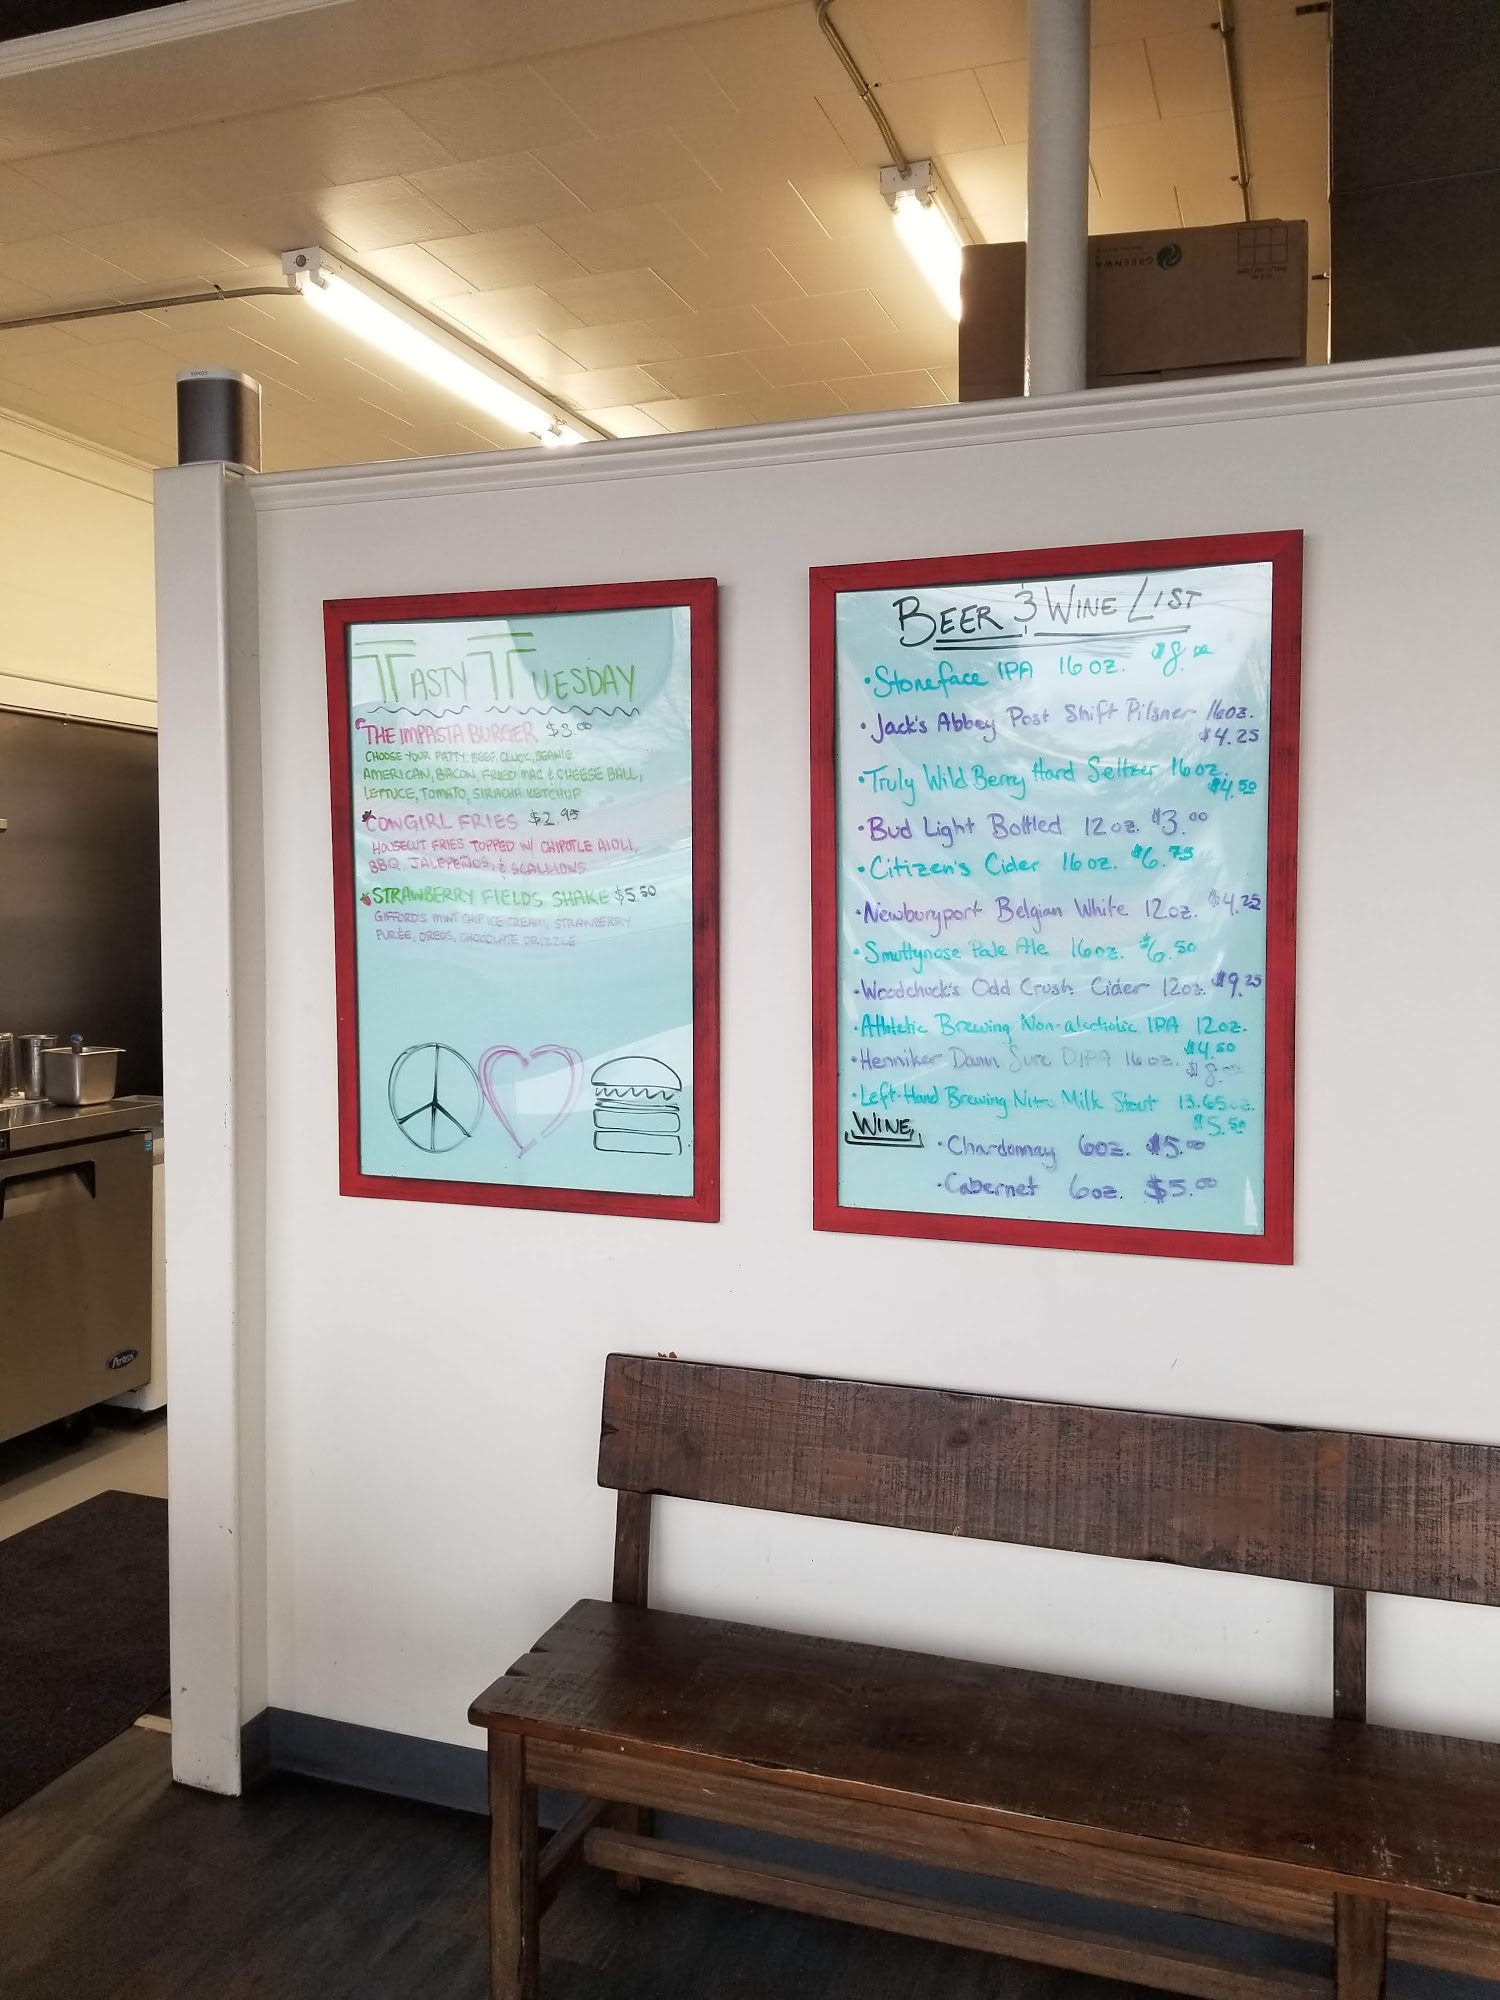 SONOS
GREENWA
TASTY TUESDAY
THE IMPASTA BURGER $8.00
CHOOSE YOUR PATTY: BEEF, CLUCK, BEANIE
AMERICAN, BACON, FRIED MAC & CHEESE BALL,
LETTUCE, TOMATO, SIRACHA KETCHUP
COWGIRL FRIES $2.95
HOUSECUT FRIES TOPPED W/ CHIPOTLE AIOLI,
BBQ, JALEPEÑOS, & SCALLIONS
STRAWBERRY FIELDS SHAKE $5.50
GIFFORD'S MINT CHIP ICE CREAM, STRAWBERRY
PURÉE, OREOS, CHOCOLATE DRIZZLE
BEER & WINE LIST
• Stoneface IPA 16oz. $8.00
• Jack's Abbey Post Shift Pilsner 16oz.
$4.25
• Truly Wild Berry Hard Seltzer 16oz.
$4.50
• Bud Light Bottled 12oz. $3.00
• Citizen's Cider 16oz. $6.75
• Newburyport Belgian White 12oz. $4.25
• Smuttynose Pale Ale 16oz. $6.50
• Woodchuck's Odd Crush Cider 12oz. $9.25
• Athletic Brewing Non-alcoholic IPA 12oz.
$4.50
• Henniker Damn Sure DIPA 16oz.
$8.00
• Left-Hand Brewing Nitro Milk Stout 13.65oz.
$5.50
WINE
• Chardonnay 6oz. $5.00
• Cabernet 6oz. $5.00
Atosa